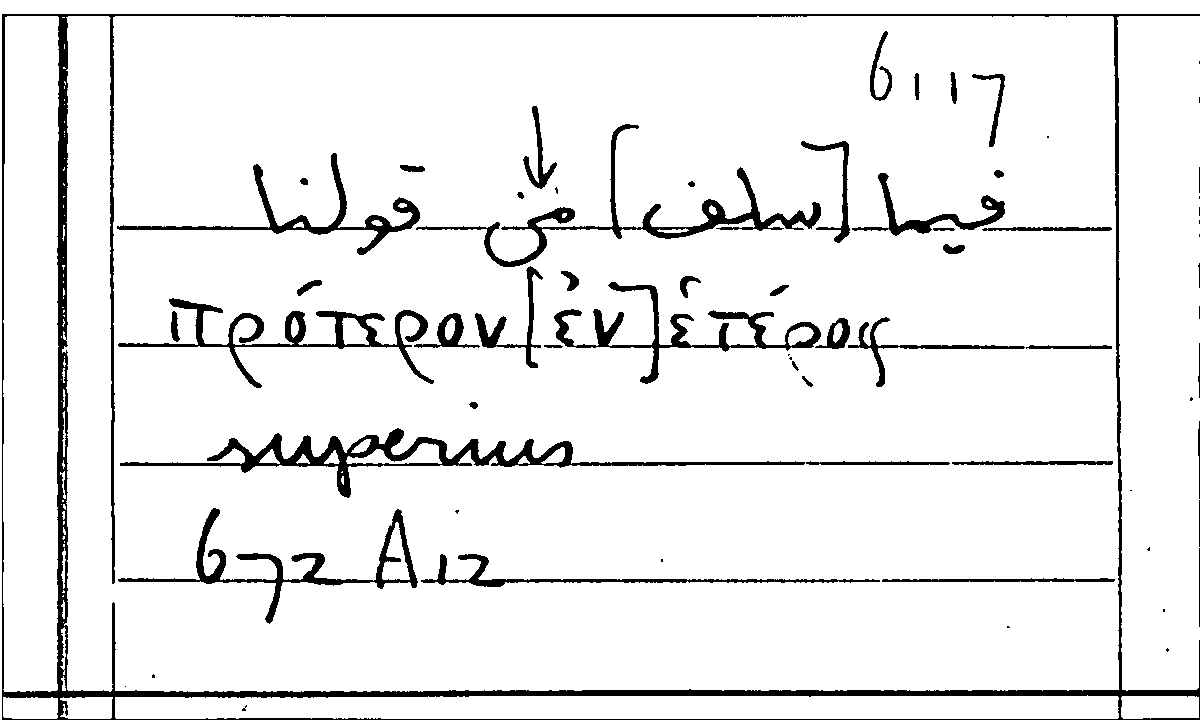 61,17
فيما [سلف] من قولنا
πρότερον [ἐν] ἑτέρος
superius
672 A12